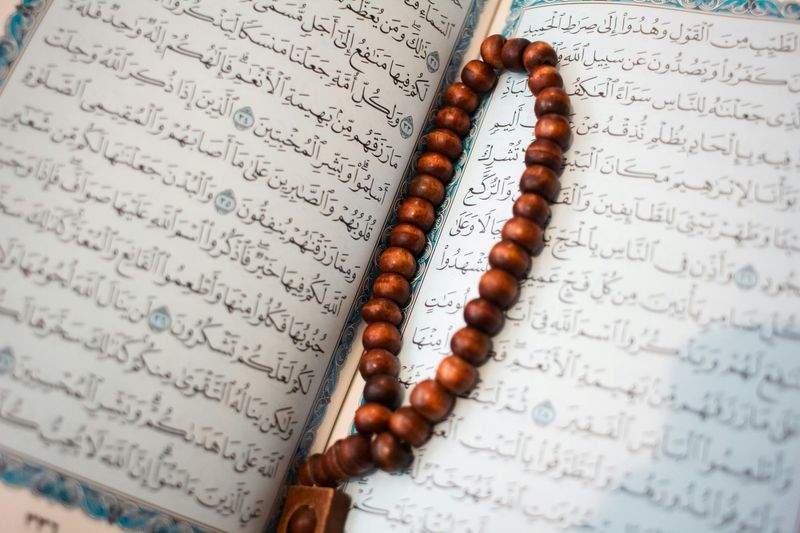 الطَّيِّبِ مِنَ الْقَوْلِ وَهُدُوا إِلَىٰ صِرَاطِ الْحَمِيدِ
كَفَرُوا وَيَصُدُّونَ عَن سَبِيلِ اللَّهِ
الَّذِي جَعَلْنَاهُ لِلنَّاسِ سَوَاءً الْعَاكِفُ
فِيهِ بِإِلْحَادٍ بِظُلْمٍ نُّذِقْهُ مِنْ أَلِيمٍ
بَوَّأْنَا لِإِبْرَاهِيمَ مَكَانَ الْبَيْتِ تُشْرِكْ
شَيْئًا وَطَهِّرْ بَيْتِيَ لِلطَّائِفِينَ وَالرُّكَّعِ
السُّجُودِ ٢٦ وَأَذِّن فِي النَّاسِ بِالْحَجِّ رِجَالًا وَعَلَىٰ
ضَامِرٍ يَأْتِينَ مِن كُلِّ فَجٍّ لِّيَشْهَدُوا
مَنَافِعَ لَهُمْ وَيَذْكُرُوا اسْمَ اللَّهِ فِي مَّعْلُومَاتٍ
عَلَىٰ مَا رَزَقَهُم مِّن بَهِيمَةِ الْأَنْعَامِ مِنْهَا
وَأَطْعِمُوا الْبَائِسَ الْفَقِيرَ ٢٨ ثُمَّ
نُذُورَهُمْ وَلْيَطَّوَّفُوا بِالْبَيْتِ الْعَتِيقِ
اللَّهِ فَهُوَ خَيْرٌ
عَلَيْكُمْ
ذَٰلِكَ وَمَن يُعَظِّمْ
لَكُمْ فِيهَا مَنَافِعُ إِلَىٰ أَجَلٍ مُّسَمًّى
٣٣ وَلِكُلِّ أُمَّةٍ جَعَلْنَا مَنسَكًا لِّيَذْكُرُوا
مَا رَزَقَهُم مِّن بَهِيمَةِ الْأَنْعَامِ فَإِلَٰهُكُمْ إِلَٰهٌ وَاحِدٌ فَلَهُ
أَسْلِمُوا وَبَشِّرِ الْمُخْبِتِينَ ٣٤ الَّذِينَ إِذَا ذُكِرَ اللَّهُ وَجِلَتْ
قُلُوبُهُمْ وَالصَّابِرِينَ عَلَىٰ مَا أَصَابَهُمْ وَالْمُقِيمِي الصَّلَاةِ
وَمِمَّا رَزَقْنَاهُمْ يُنفِقُونَ ٣٥ وَالْبُدْنَ جَعَلْنَاهَا لَكُم مِّن شَعَائِرِ
اللَّهِ لَكُمْ فِيهَا خَيْرٌ فَاذْكُرُوا اسْمَ اللَّهِ عَلَيْهَا صَوَافَّ فَإِذَا وَجَبَتْ
جُنُوبُهَا فَكُلُوا مِنْهَا وَأَطْعِمُوا الْقَانِعَ وَالْمُعْتَرَّ كَذَٰلِكَ سَخَّرْنَاهَا
لَكُمْ لَعَلَّكُمْ تَشْكُرُونَ ٣٦ لَن يَنَالَ اللَّهَ لُحُومُهَا وَلَا
وَلَٰكِن يَنَالُهُ التَّقْوَىٰ مِنكُمْ كَذَٰلِكَ سَخَّرَهَا لَكُمْ
اللَّهَ عَلَىٰ مَا هَدَاكُمْ وَبَشِّرِ الْمُحْسِنِينَ
عَنِ الَّذِينَ آمَنُوا إِنَّ اللَّهَ لَا يُحِبُّ كُلَّ
٣٣٦